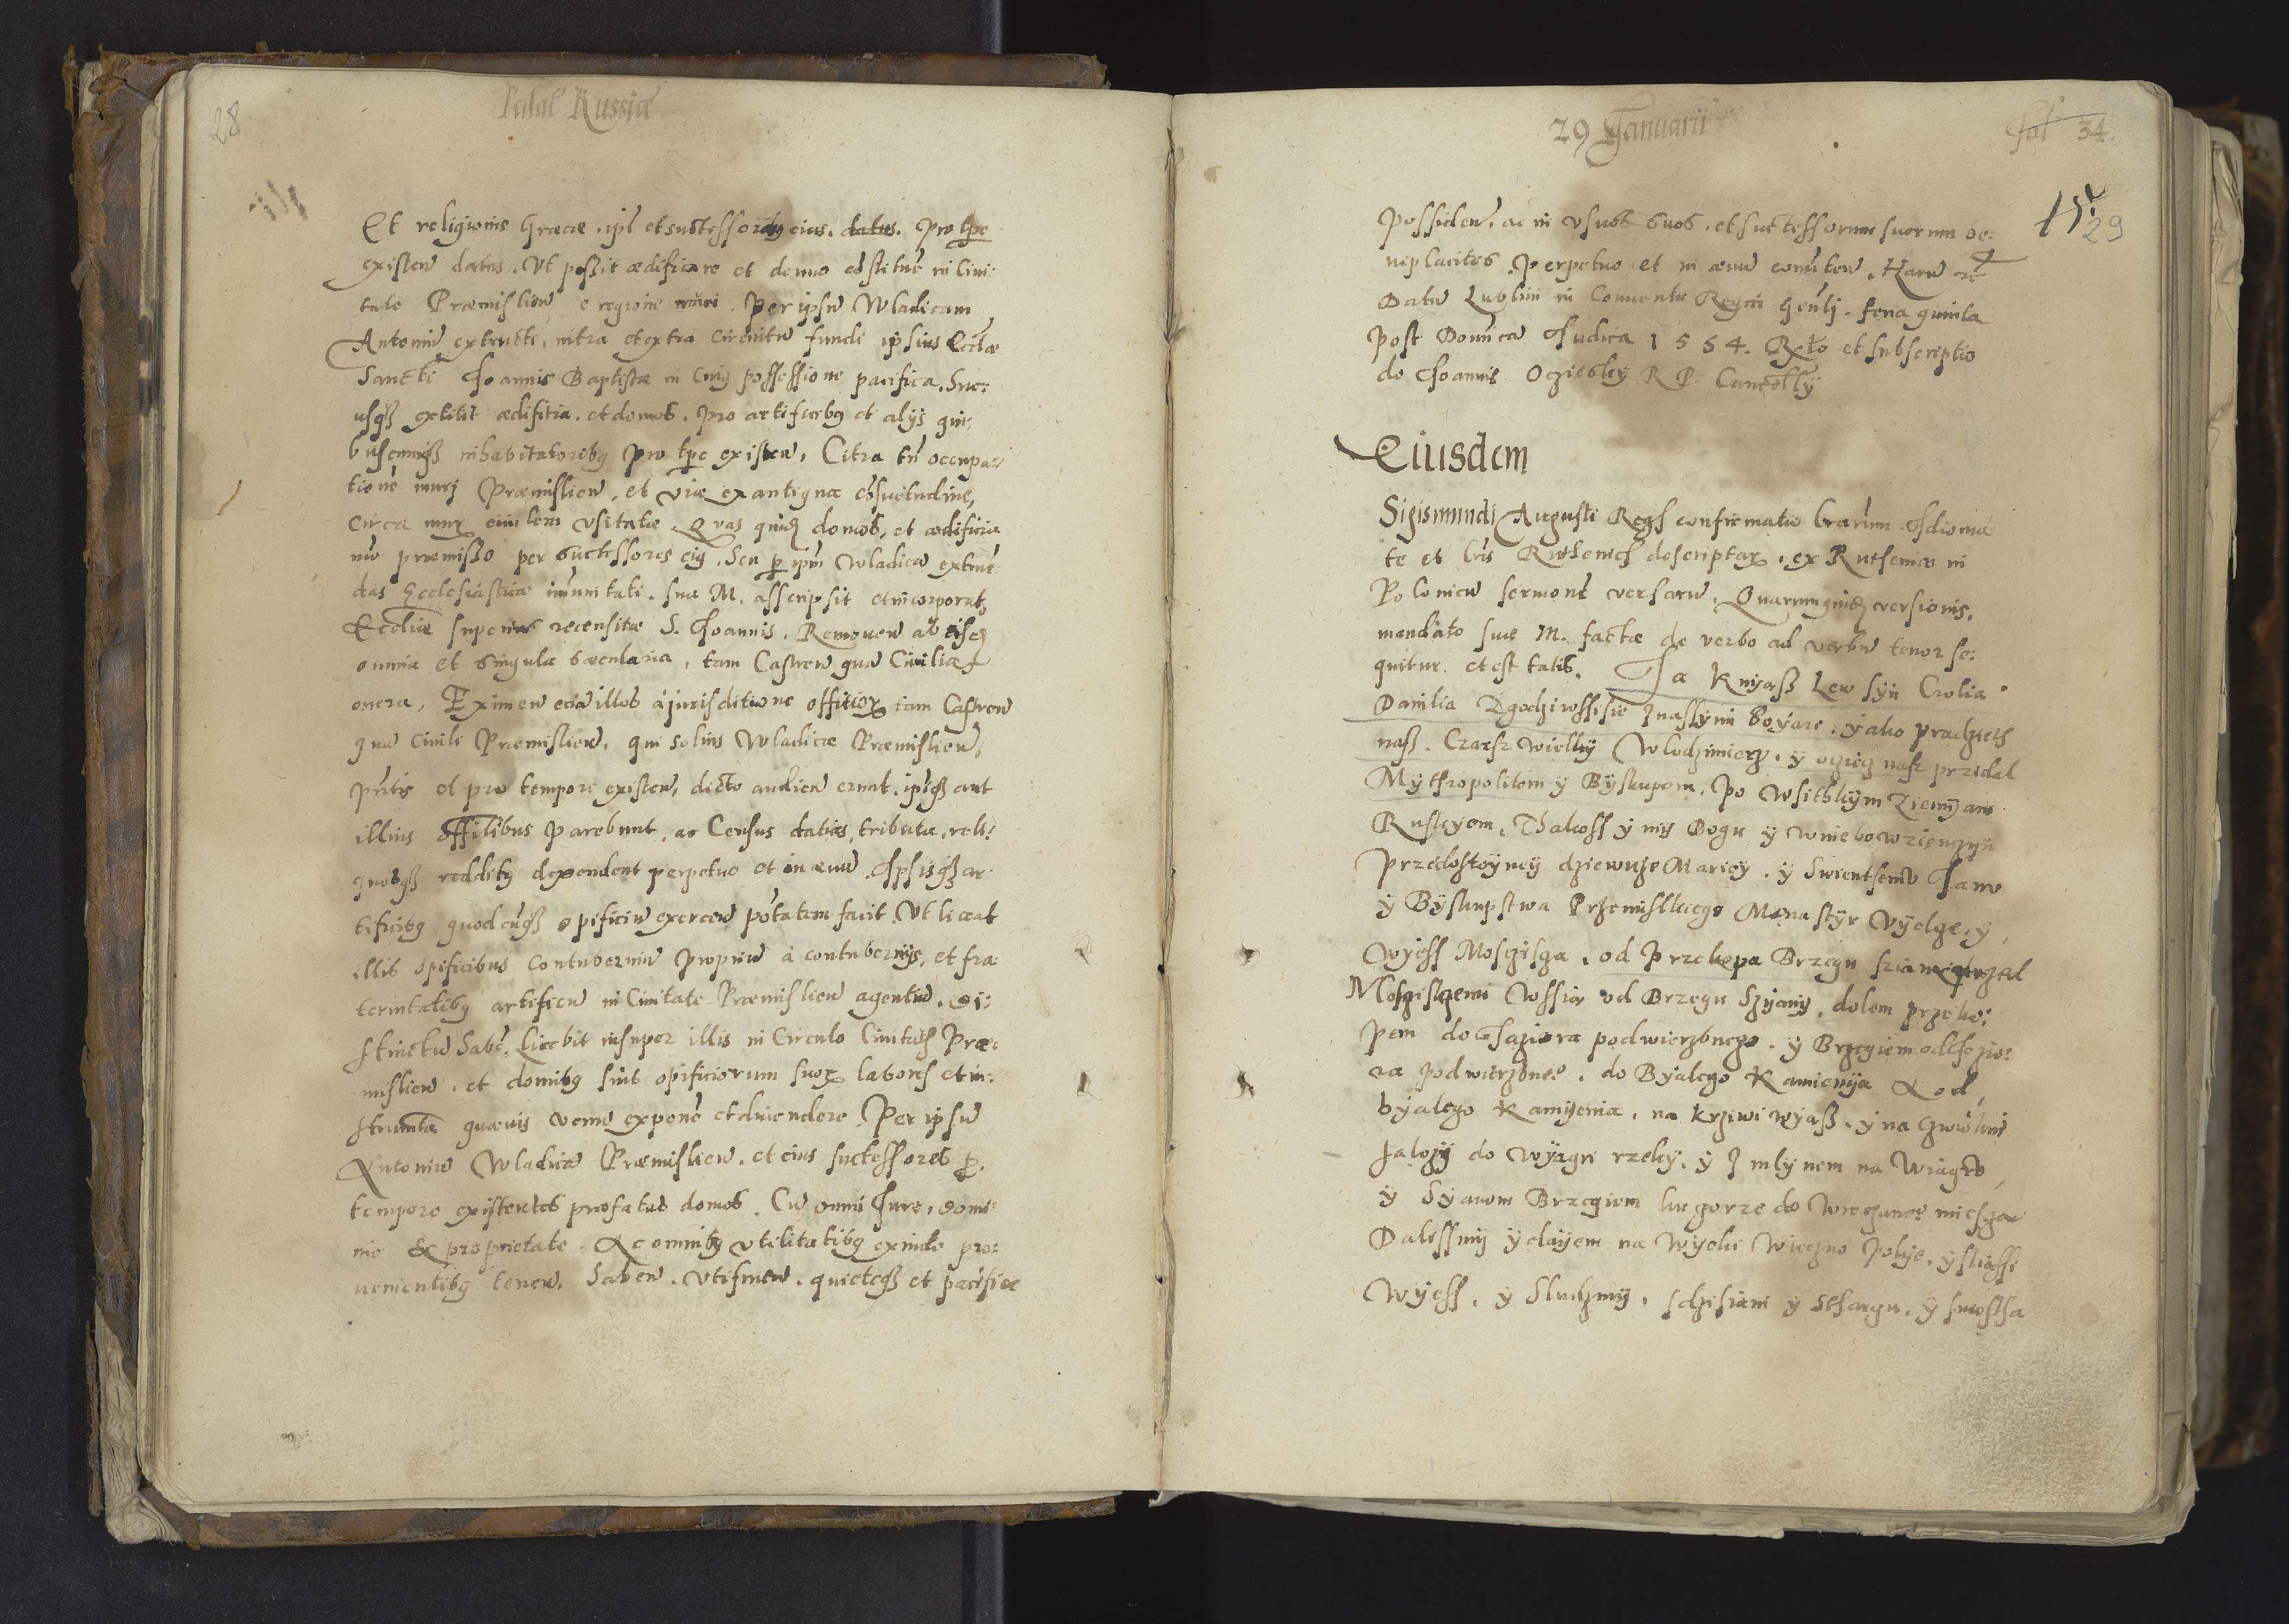 28
Palat Russiae
Et religionis Graecae. ipi et successoribq eius. datus. pro tpe
existen datus. Ut possit aedificare et denuo costitue in Civi:
tate Praemislien e regione muri. per ipsu Wladicam
Antoniu extructi, intra et extra circuitu fundi ipsius Eccliae
Sancti Joannis Baptistae in Cuiq possessione pacifica. huc:
usqz extitit aedifitia. et domos. pro artificibq et alys qui:
buscunqz inhabitatoribq pro tpe existen. Citra tn occupa:
tione murj Praemislien, et viae ex antiqua cosuetudine,
circa mur eundem usitatae. Quas quidz domos, et aedificia
mo praemisso per successores eiq. Seu p ipm Wladica extrue
das Ecclesiasticae imunitati. sua M. asscripsit et incorporat
Eccliae superius recensitae S. Joannis. Removen ab eisdz
omnia et singula saecularia, tam Castren qua Civilia
onera. Eximen ecia illos à jurisditione offitior tam Castren
qua Civili Praemislien, qui solius Wladicae Praemislien,
pntis et pro tempore existen, dicto audien erunt. ipiqz aut
illius offitilibus parebunt, ac Census datias, tributa, reli:
quosqz redditq dependent perpetuo et in aevu. Ipsisqz ar
tificibq quodcuqz opificiu exercen potatem facit. Ut liceat
illis opificibus contuberniu propriu à contubernys, et fra
ternitatibq artificu in Civitate Praemislien agentiu. di:
stinctu habe. Licebit insuper illis in Circulo Civitatis Prae:
mislien. et domibq suis opificiorum suor labores et in:
strumta quaevis venu expone et divendere. Per ipsu
Antoniu Wladica Praemislien. et eius successores p.
tempore existentes praefatas domos. Cu omni Jure, domi:
nio & proprietate. Ac omnibq utilitatibq exinde pro:
venientibq tenen. haben. utifruen. quieteqz et pacifice
29 Januarii
fol 34.
15.
29
possiden. ac in usus suos. et successorum suorum be:
neplacitos. perpetuo et in aevu conuten. Haru etc
Datu Lublini in Conventu Regni genli. feria quinta
post Donica Judica 1554. Rxto et subscriptio
do Joannis Ocziesky R P. Cancelly
Eiusdem
Sigismundi Augusti Regs confirmatio Lrarum. Idioma
te et lris Ruthenics descriptar. ex Ruthenico in
Polonicu sermone versaru. Quarum quidz versionis,
mandato suae M. factae de verbo ad verbu tenor se:
quitur. et est talis. Ja Knyasz Lew syn Crolia
Danilia Zgodziwssi sie z naszymi boyare. yako pradziad
nasz. Czarsz wielky Wlodzimierz. y ociecz nasz przidal
Mythropolitom y Byskupom. po wsitkkym ziemyam
Ruskyem. Thakoss y my Bogu y wniebowziencyu
przedostoyney dziewicze Mariey. y Swientemu Janu
y Byskupstwa Przemisskiego Monastyr Vyelge. y,
wyess Mosczisga. od przekopa Brzegu
Mosgiskzemi wssia od Brzegu Szyany. dolem przeko:
pem do Jaziora podwierzbnego. y Brzegiem od Jezio:
ra podwierzbne. do Byalego Kamienya & od,
byalego Kamyenia. na krziwi wyass. y na
do Wyagri rzeky. y z mlynem na Wiagro,
y Syanem Brzegiem ku gorze do miesza
Dalissmy y na Wyeki wieczno polye.
wyess. y Sluzmy. y